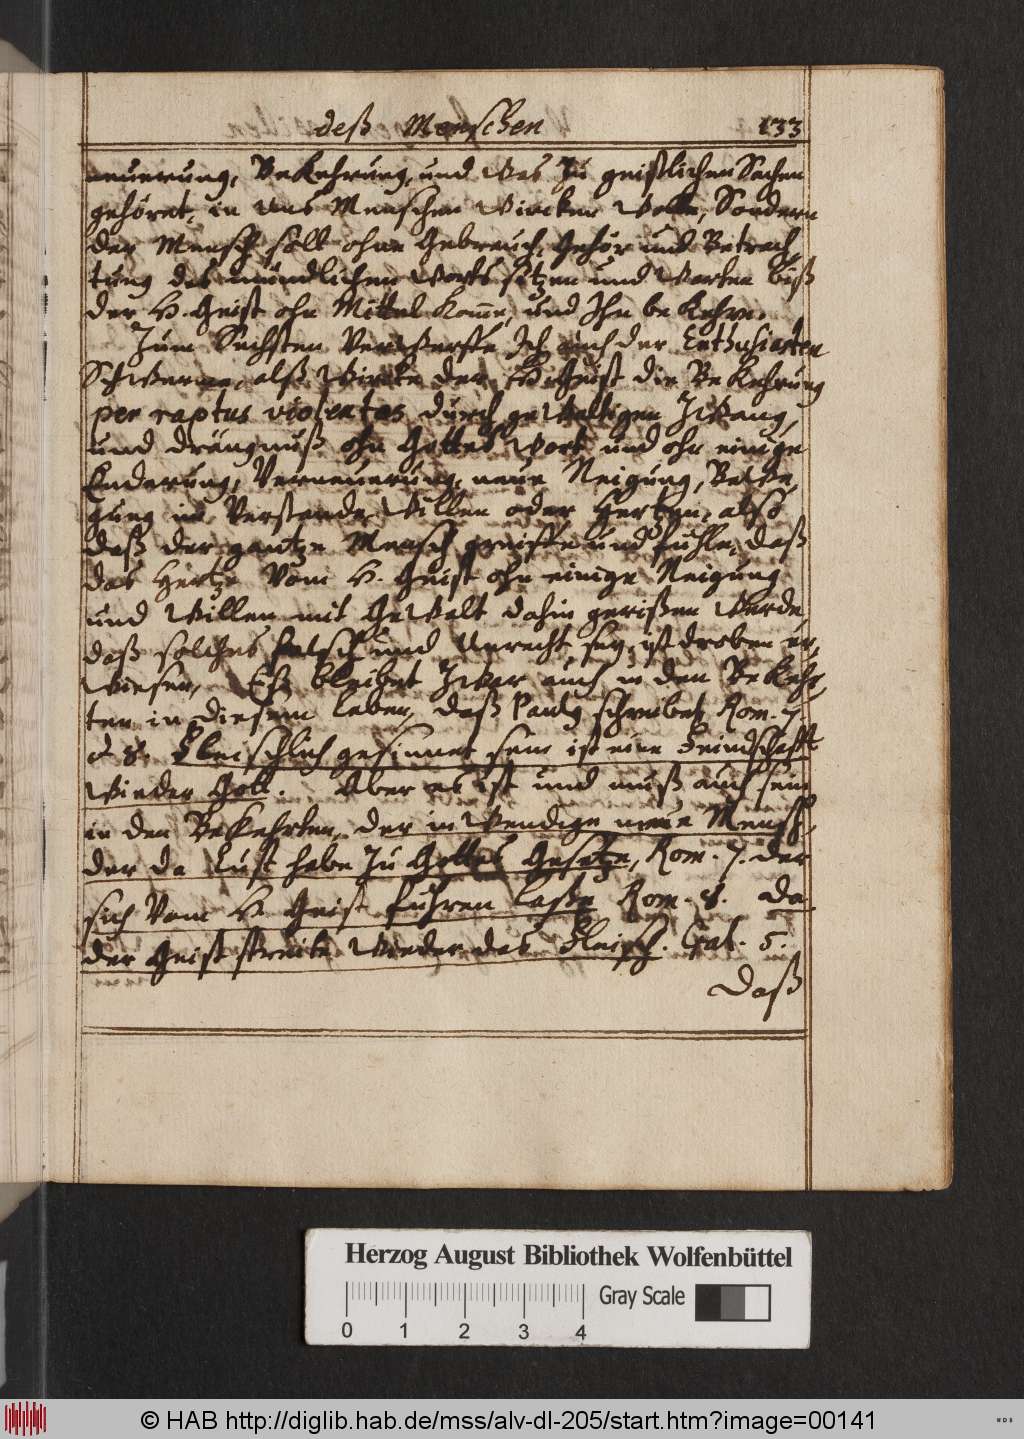 deß Menschen 133
neuerung, Bekehrung, und was zu geistlichen Sachen
gehöret, in uns Menschen wircken wolle, Sondern
der Mensch solt ohne Gebrauch, Gehör und Betrach,
tung des mündlichen Worts sitzen und warten biß
der H. Geist ohn Mittel komme, und Ihn bekehre.
Zum Sechsten verwerffe Ich auch der Enthusiasten
Schwerme, alß wircke der H. Geist die Bekehrung
per raptus violentos durch gewaltigen Zwang,
und drängnuß ohn Gottes Wort und ohn einige
Enderung, Verneuerung, neue Neigung, Bewe,
gung im Verstande Willen oder Hertzen, also
daß der gantze Mensch greiffe und fühle, daß
das Hertze vom H. Geist ohn einige Neigung
und Willen mit Gewalt dahin gerißen werde
daß solches falsch und Unrecht sey, ist droben er,
wiesen, Eß bleibet zwar auch in den Bekehr,
ten in diesem leben, daß Paulus schreibet Rom. 7.
& 8. Fleischlich gesinnet sein ist eine Feindschafft
wieder Gott. Aber es ist und muß auch sein
in den Bekehrten, der inwendige neue Mensch,
der da lust habe zu Gottes Gesetze, Rom. 7. der
sich vom H. Geist führen laße Rom. 8. da
der Geist streite wieder das Fleisch. Gal. 5.
Daß
Herzog August Bibliothek Wolfenbüttel
Gray Scale
0 1 2 3 4
© HAB http://diglib.hab.de/mss/alv-dl-205/start.htm?image=00141